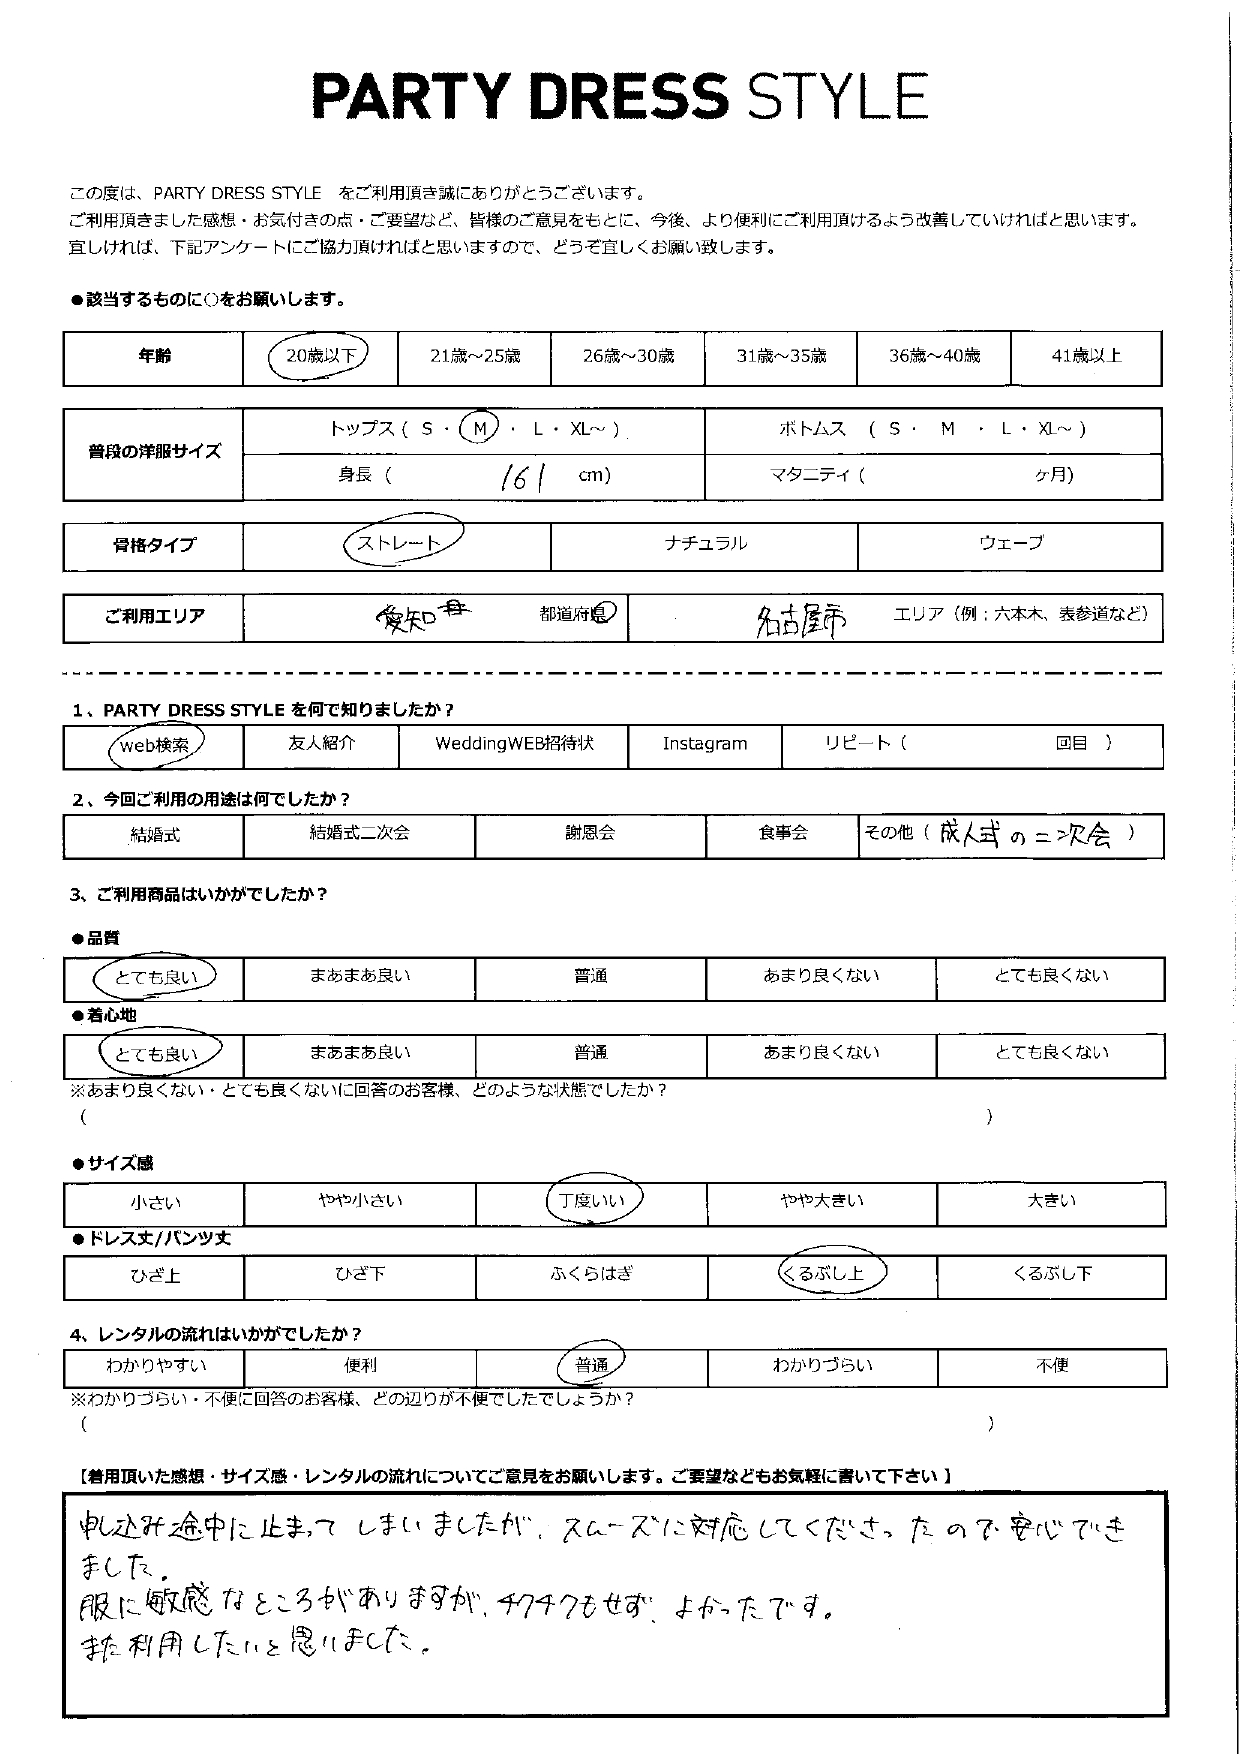 PARTY DRESS STYLE
この度は、PARTY DRESS STYLE をご利用頂き誠にありがとうございます。
ご利用頂きました感想・お気付きの点・ご要望など、皆様のご意見をもとに、今後、より便利にご利用頂けるよう改善していければと思います。
宜しければ、下記アンケートにご協力頂ければと思いますので、どうぞ宜しくお願い致します。
●該当するものに○をお願いします。
年齢 20歳以下 21歳～25歳 26歳～30歳 31歳～35歳 36歳～40歳 41歳以上
普段の洋服サイズ
トップス ( S ・ M ・ L ・ XL～ ) ボトムス ( S ・ M ・ L ・ XL～ )
身長 ( 161 cm) マタニティ ( ヶ月)
骨格タイプ ストレート ナチュラル ウェーブ
ご利用エリア 愛知 都道府県 名古屋市 エリア（例；六本木、表参道など）
1、PARTY DRESS STYLE を何で知りましたか？
web検索 友人紹介 WeddingWEB招待状 Instagram リピート ( 回目 )
2、今回ご利用の用途は何でしたか？
結婚式 結婚式二次会 謝恩会 食事会 その他 ( 成人式の二次会 )
3、ご利用商品はいかがでしたか？
●品質
とても良い まあまあ良い 普通 あまり良くない とても良くない
●着心地
とても良い まあまあ良い 普通 あまり良くない とても良くない
※あまり良くない・とても良くないに回答のお客様、どのような状態でしたか？
( )
●サイズ感
小さい やや小さい 丁度いい やや大きい 大きい
●ドレス丈/パンツ丈
ひざ上 ひざ下 ふくらはぎ くるぶし上 くるぶし下
4、レンタルの流れはいかがでしたか？
わかりやすい 便利 普通 わかりづらい 不便
※わかりづらい・不便に回答のお客様、どの辺りが不便でしたでしょうか？
( )
【着用頂いた感想・サイズ感・レンタルの流れについてご意見をお願いします。ご要望などもお気軽に書いて下さい】
申し込み途中に止まってしまいましたが、スムーズに対応してくださったので安心でき
ました。
服に敏感なところがありますが、チクチクもせず、よかったです。
また利用したいと思いました。